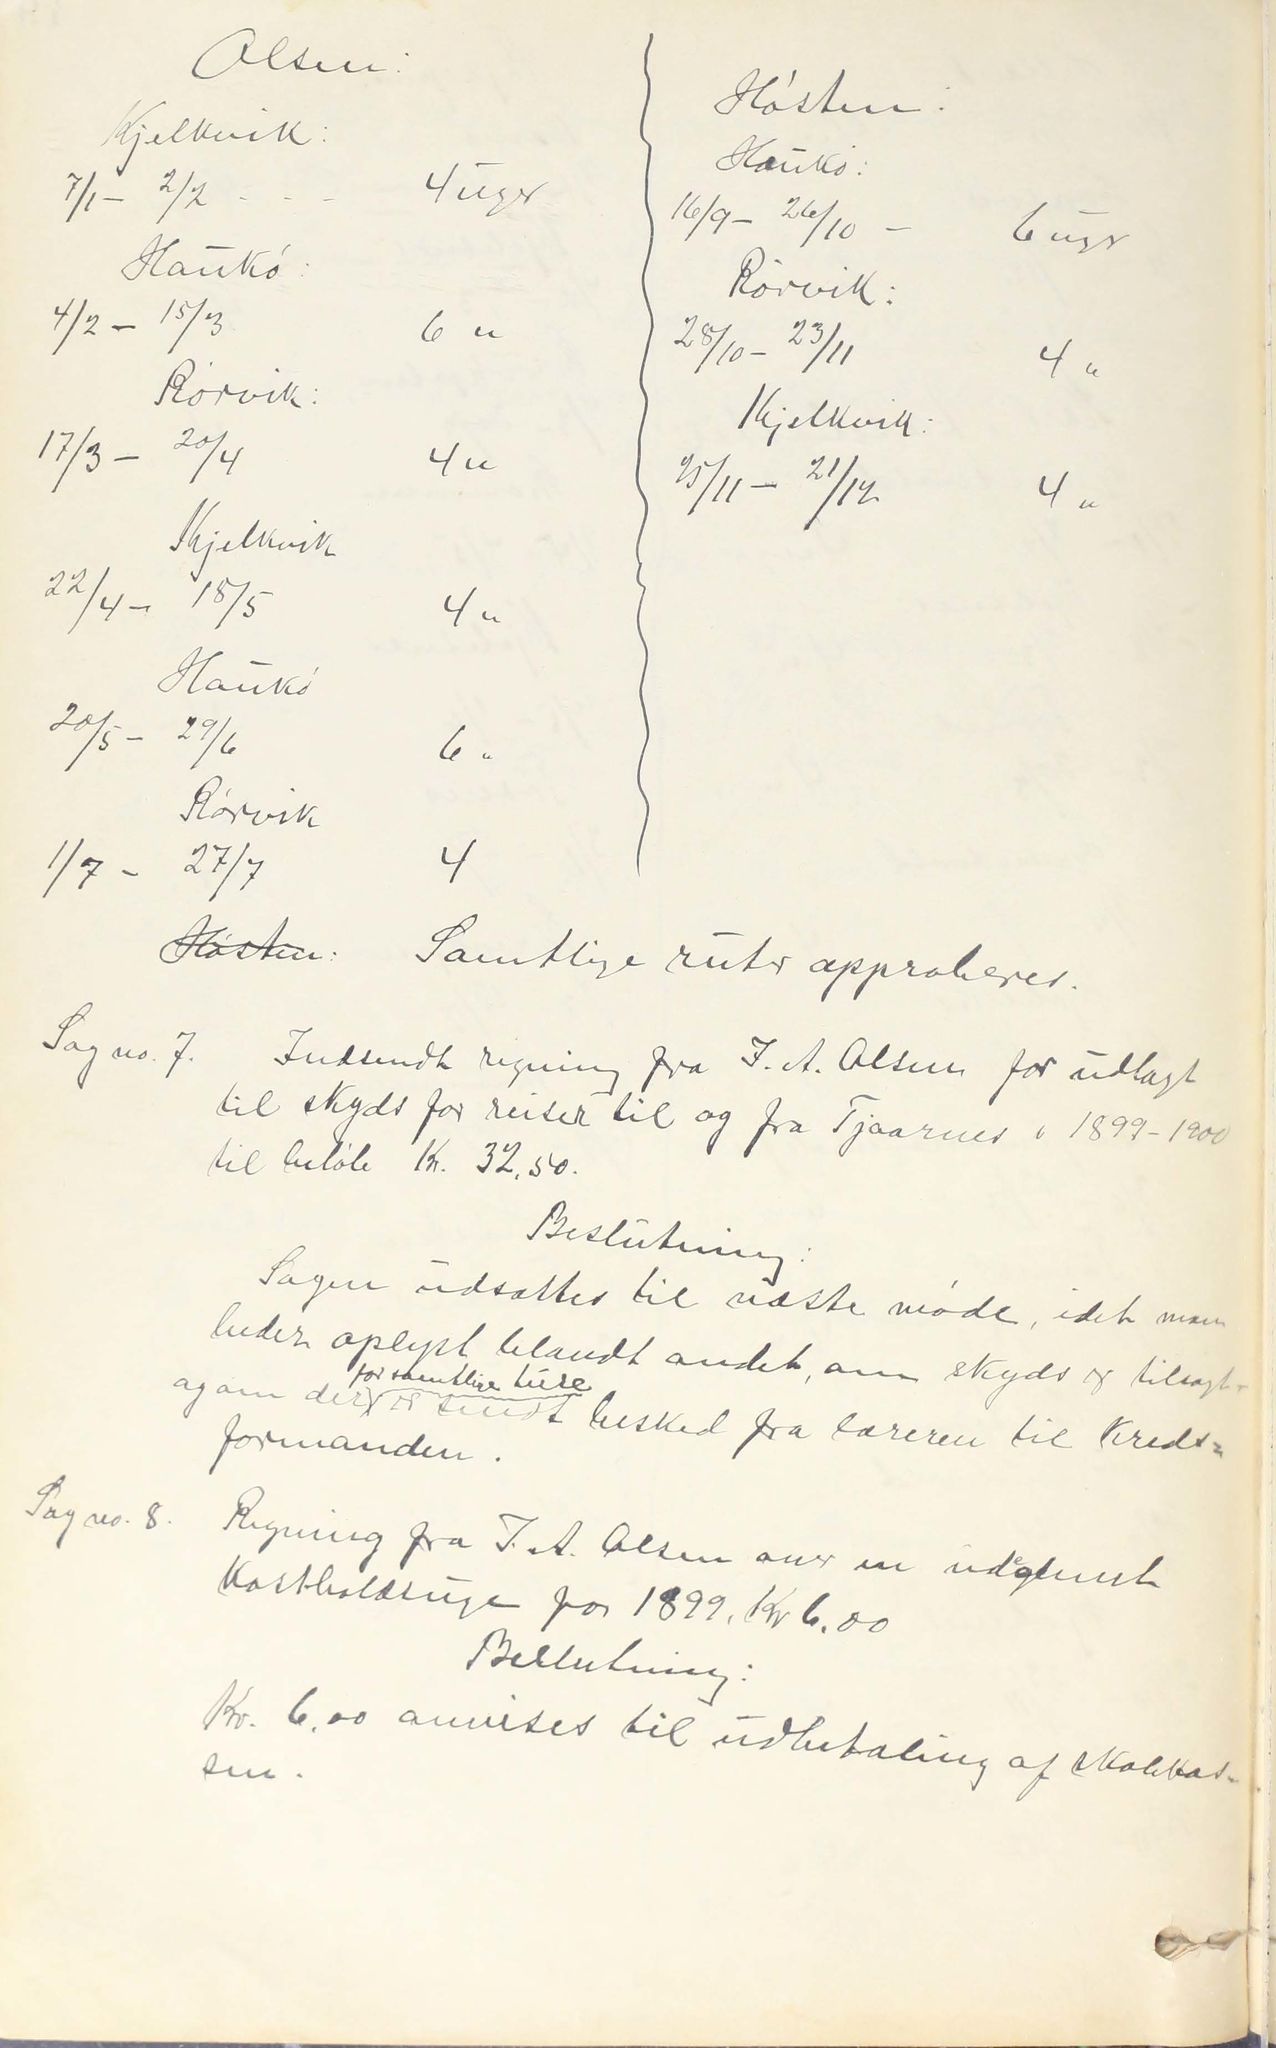 Olsen:
Kjelkvik:
7/1 - 2/2 - - - 4 uger
Haukö:
4/2 - 15/3 6 "
Rörvik:
17/3 - 20/4 4 "
Kjelkvik
22/4 - 18/5 4 "
Haukö
20/5 - 29/6 6 "
Rörvik
1/7 - 27/7 4
Hösten:
Hösten:
Haukö:
16/9 - 26/10 - 6 uger
Rörvik:
28/10 - 23/11 4 "
Kjelkvik:
25/11 - 21/12 4 "
Samtlige ruter approberes.
Sag no. 7. Indsendt regning fra J. A. Olsen for udlagt
til skyds for reiser til og fra Tjaarnes i 1899-1900
til beløb Kr. 32,50.
Beslutning:
Sagen udsættes til næste møde, idet man
beder oplyst blandt andet, om skyds er tilsagt
for samtlige ture
og om der er sendt besked fra læreren til Kreds=
formanden.
Sag no. 8. Regning fra J. A. Olsen over en udeglemt
Kostholdsuge for 1899, Kr 6,00
Beslutning:
Kr. 6,00 anvises til udbetaling af skolekas-
sen.